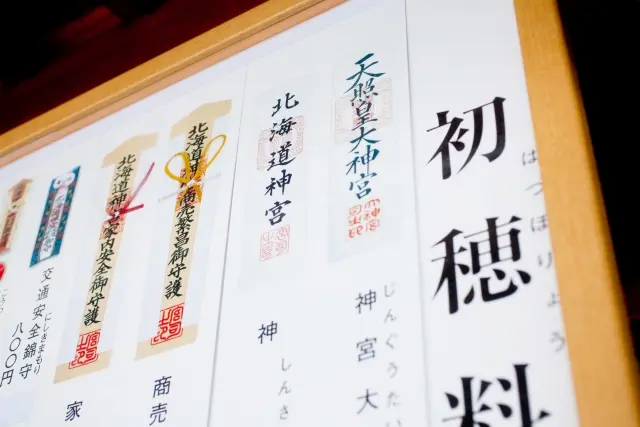 初穂料
はつほりょう
天照皇大神宮
神宮大
じんぐうたい
北海道神宮
神
しんさ
北海道神宮商売繁昌御守護
商売
北海道神宮家内安全御守護
家
交通安全錦守
にしきまもり
八〇〇円